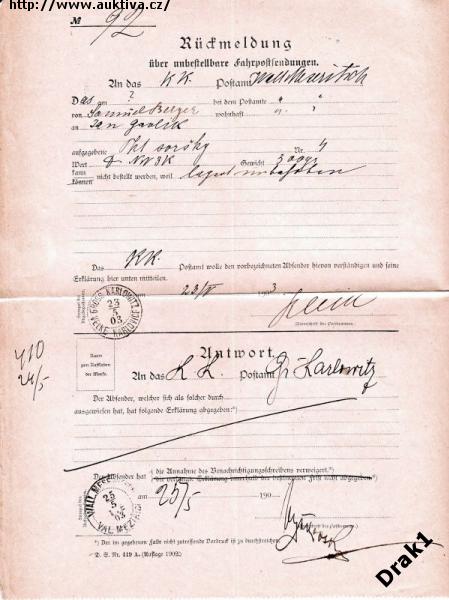 http://www.auktiva.cz/
№ 92
Rückmeldung
über unbestellbare Fahrpostsendungen.
An das KK. Postamt Wall. Meseritsch
Das am ? bei dem Postamte " "
von Samuel Berger wohnhaft " "
an Jan
aufgegebene Pkt Nr. 4
Wert Gewicht
kann
können nicht bestellt werden, weil lagert unbehoben
Das KK. Postamt wolle den vorbezeichneten Absender hievon verständigen und seine
Erklärung hier unten mitteilen.
23/V 1903
GROSS KARLOWITZ
23
5
03
VELKÉ KARLOVICE
Unterschrift des Postbeamten.
Antwort.
410
24/5
Raum
zum Aufkleben
der Marke.
An das K.K. Postamt Gr. Karlowitz
Der Absender, welcher sich als solcher durch
ausgewiesen hat, hat folgende Erklärung abgegeben:*)
Der Absender hat die Annahme des Benachrichtigungsschreibens verweigert.*)
die verlangte Erklärung innerhalb der bestimmten Frist nicht abgegeben*)
am 25/5 190
WALL. MESE
25
5
03
VAL. MEZIŘÍČ
*) Der im gegebenen Falle nicht zutreffende Vordruck ist zu durchstreichen.
D. S. Nr. 419 A. (Auflage 1902.)
Drak1